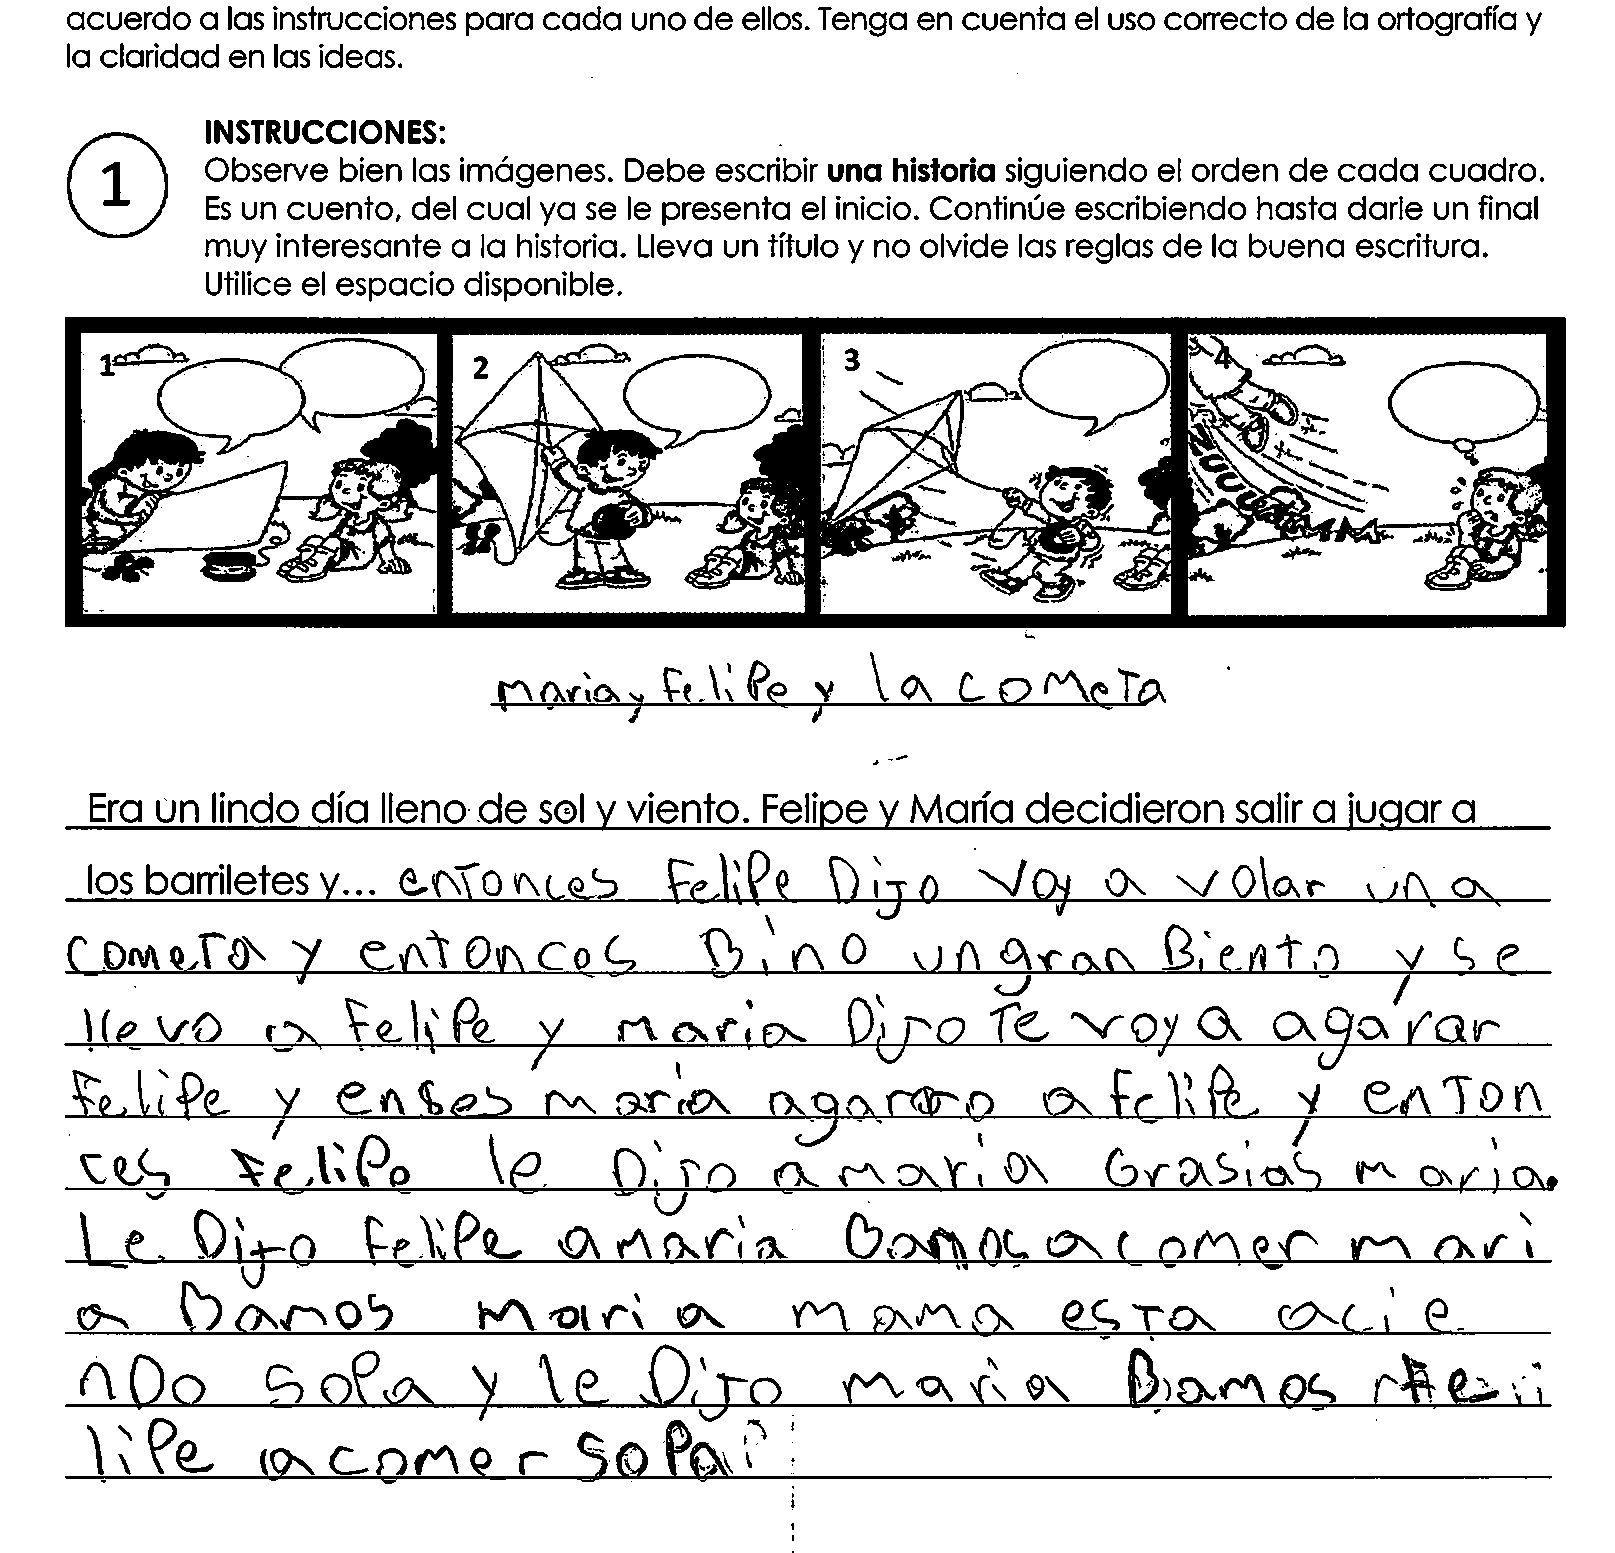 acuerdo a las instrucciones para cada uno de ellos. Tenga en cuenta el uso correcto de la ortografía y
la claridad en las ideas.
1
INSTRUCCIONES:
Observe bien las imágenes. Debe escribir una historia siguiendo el orden de cada cuadro.
Es un cuento, del cual ya se le presenta el inicio. Continúe escribiendo hasta darle un final
muy interesante a la historia. Lleva un título y no olvide las reglas de la buena escritura.
Utilice el espacio disponible.
1 2 3 4
maria y Felipe y la cometa
Era un lindo día lleno de sol y viento. Felipe y María decidieron salir a jugar a
los barriletes y... entonces Felipe Dijo voy a volar una
cometa y entonces Bino un gran Biento y se
llevo a Felipe y maria Dijo Te voy a agarar
Felipe y enses maria agaro a felipe y enton
ces Felipe le Dijo a maria Grasias maria.
Le Dijo Felipe a maria Bamos a comer mari
a Bamos maria mama esta acie
nDo sopa y le Dijo maria Bamos
lipe a comer sopa